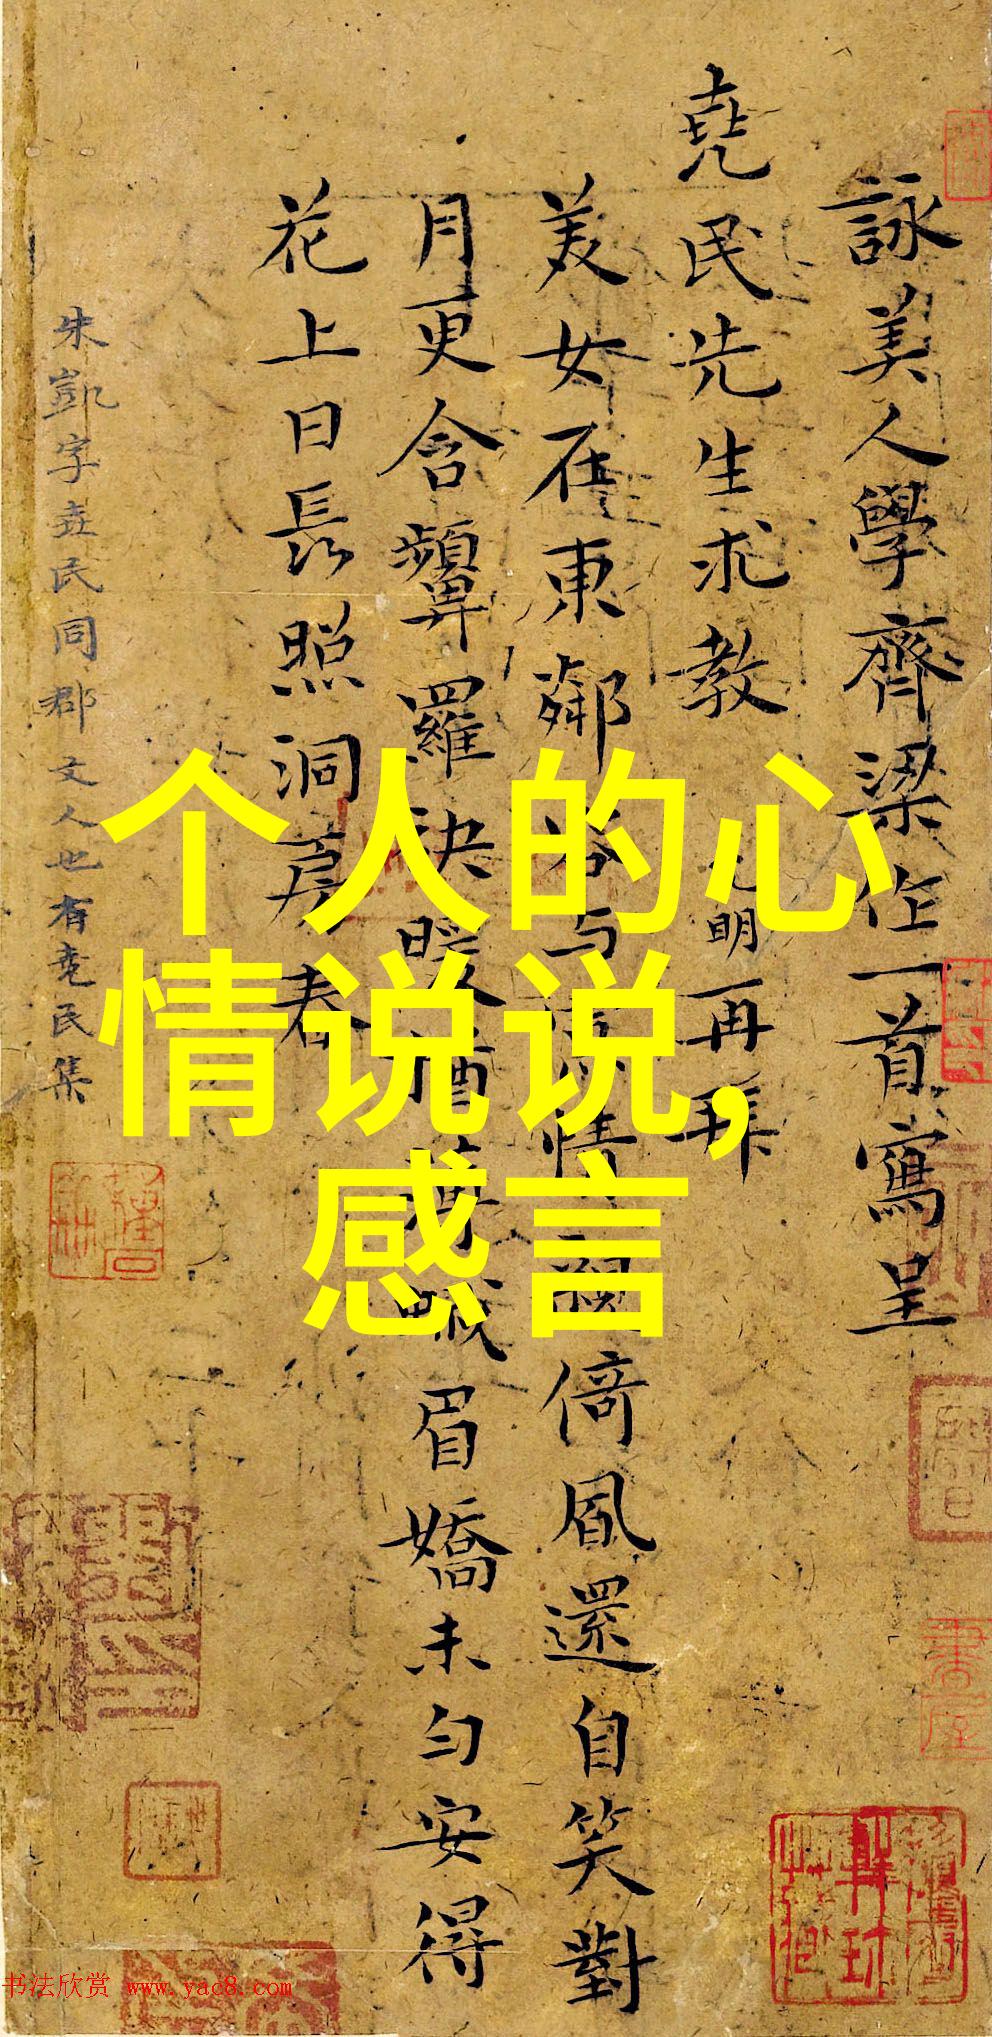 詠美人學齊梁作一首寫呈
堯民先生求教 明再拜
美女在東鄰 与 情 倚風還自笑對
月更含顰羅袂暖 眉嬌未匀安得
花上日長照洞房春
朱凱字堯民同郡文人也有堯民集
个人的心
情说说,
感言
书法欣赏 www.yac8.com